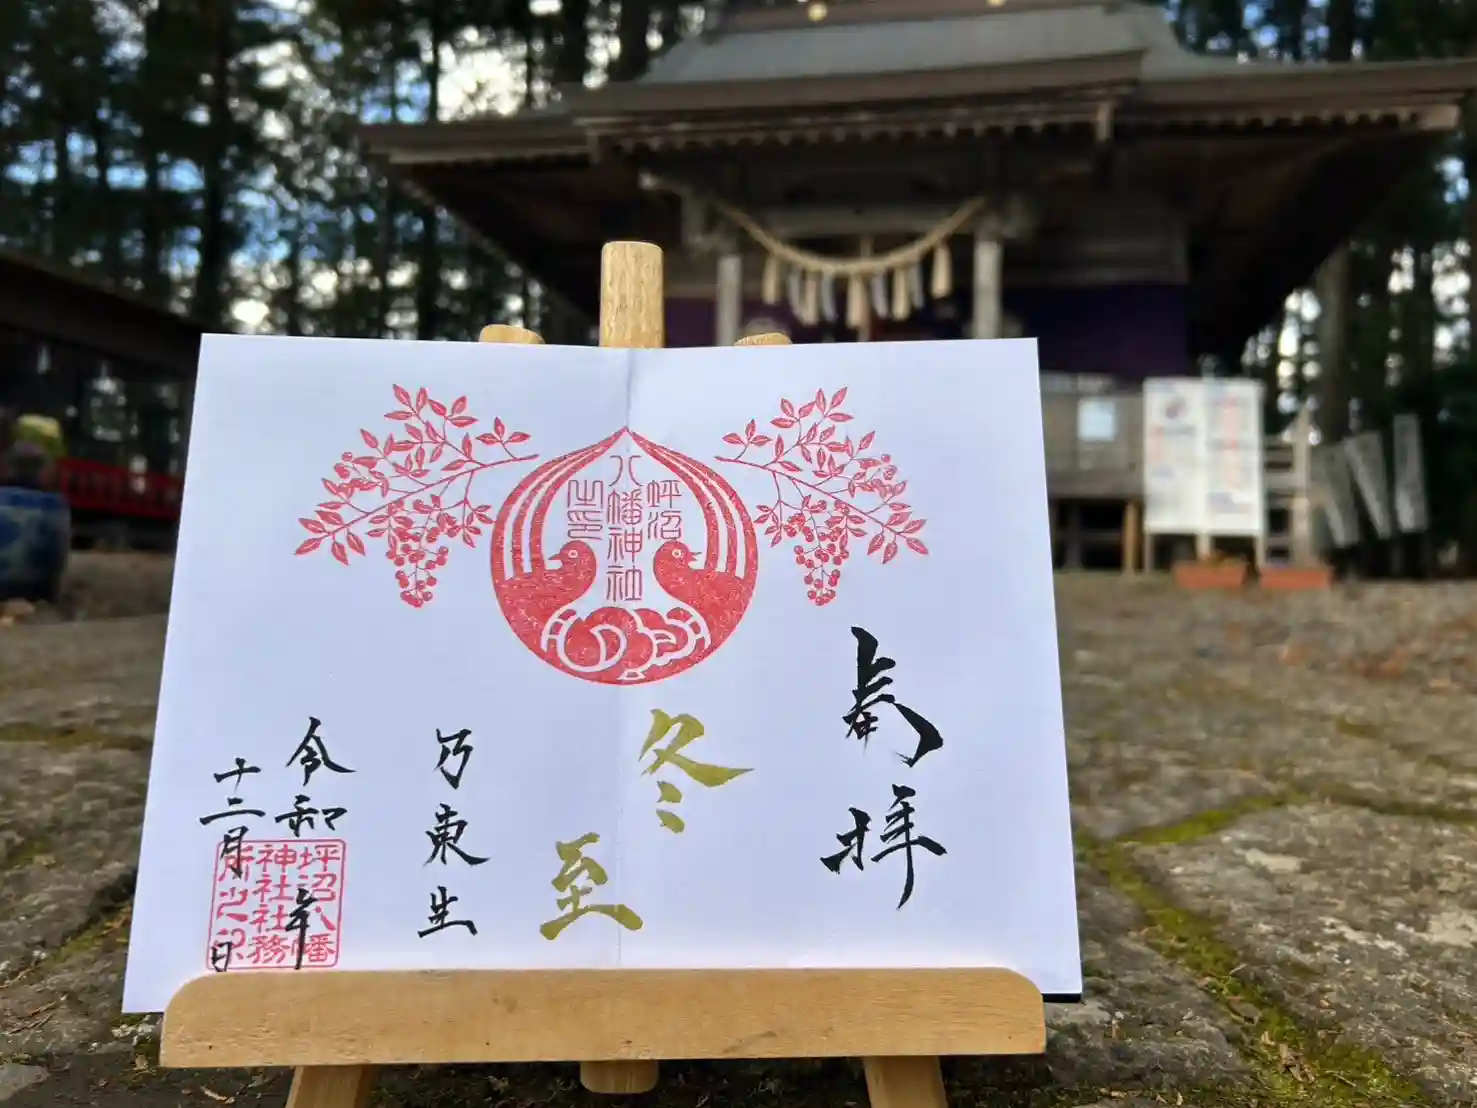 坪沼
八幡神社
之印
奉拝
冬至
乃東生
令和 年
十二月 日
坪沼八幡
神社社務
所之印